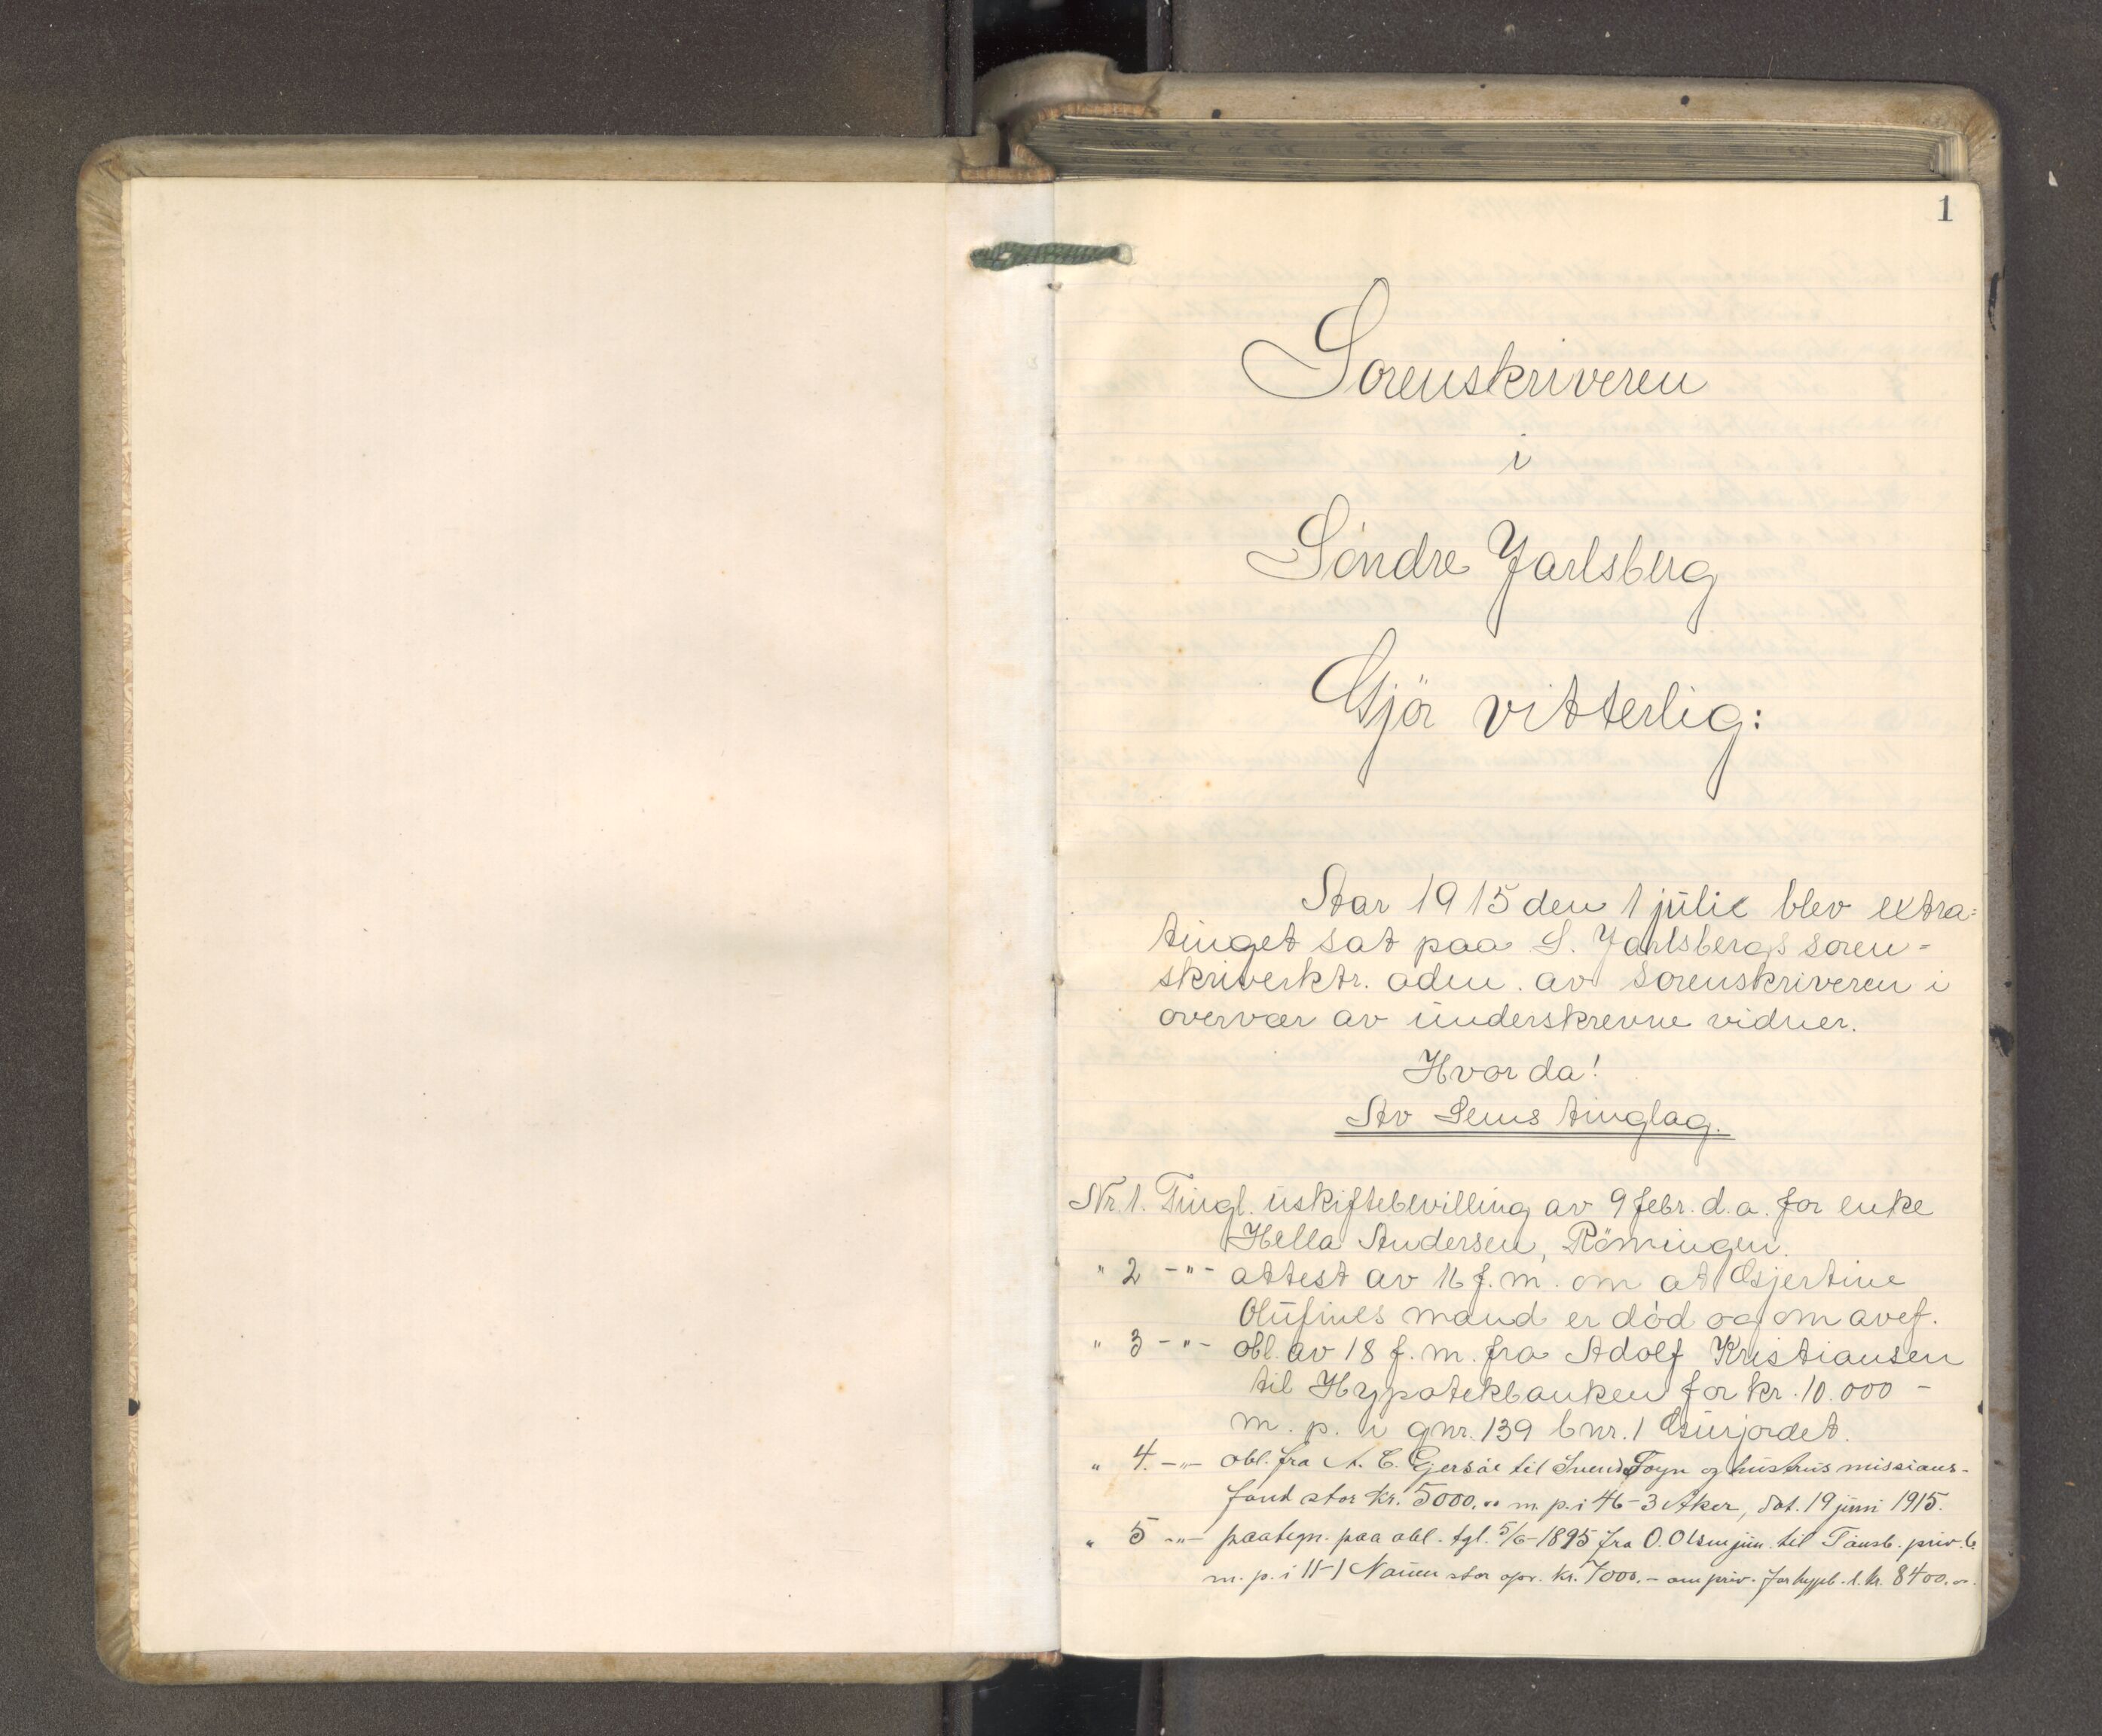 1
Sorenskriveren
i
Söndre Jarlsberg
Gjör vitterlig:
Aar 1915 den 1 juli blev extra=
tinget sat paa S. Jarlsbergs soren-
skriverktr. adm. av sorenskriveren i
overvær av underskrevne vidner.
Hvorda!
Av Sems tinglag.
Nr. 1. Tingl. uskiftebevilling av 9 febr. d.a. for enke
Hella Andersen, Römingen.
" 2 -"- attest av 16 f.m. om at Gjertine
Olufines mand er död og om avef.
" 3 -"- obl. av 18 f.m. fra Adolf Kristiansen
til Hypotekbanken for kr. 10.000 -
m. p. i gnr. 139 bnr. 1 Gurjordet.
" 4. -"- obl. fra A. C. Gjersöe til Svend Foyn og hustrus missions-
fond stor kr. 5000.00 m. p. i 46-3 Aker, dat. 19 juni 1915.
" 5 -"- paategn. paa obl. tgl. 5/6-1895 fra O. Olsen jun. til Tönsb. priv. b.
m. p. i 11-1 Nauen stor opr. kr. 7000.- om priv. for hypb. l. kr. 8400.00.